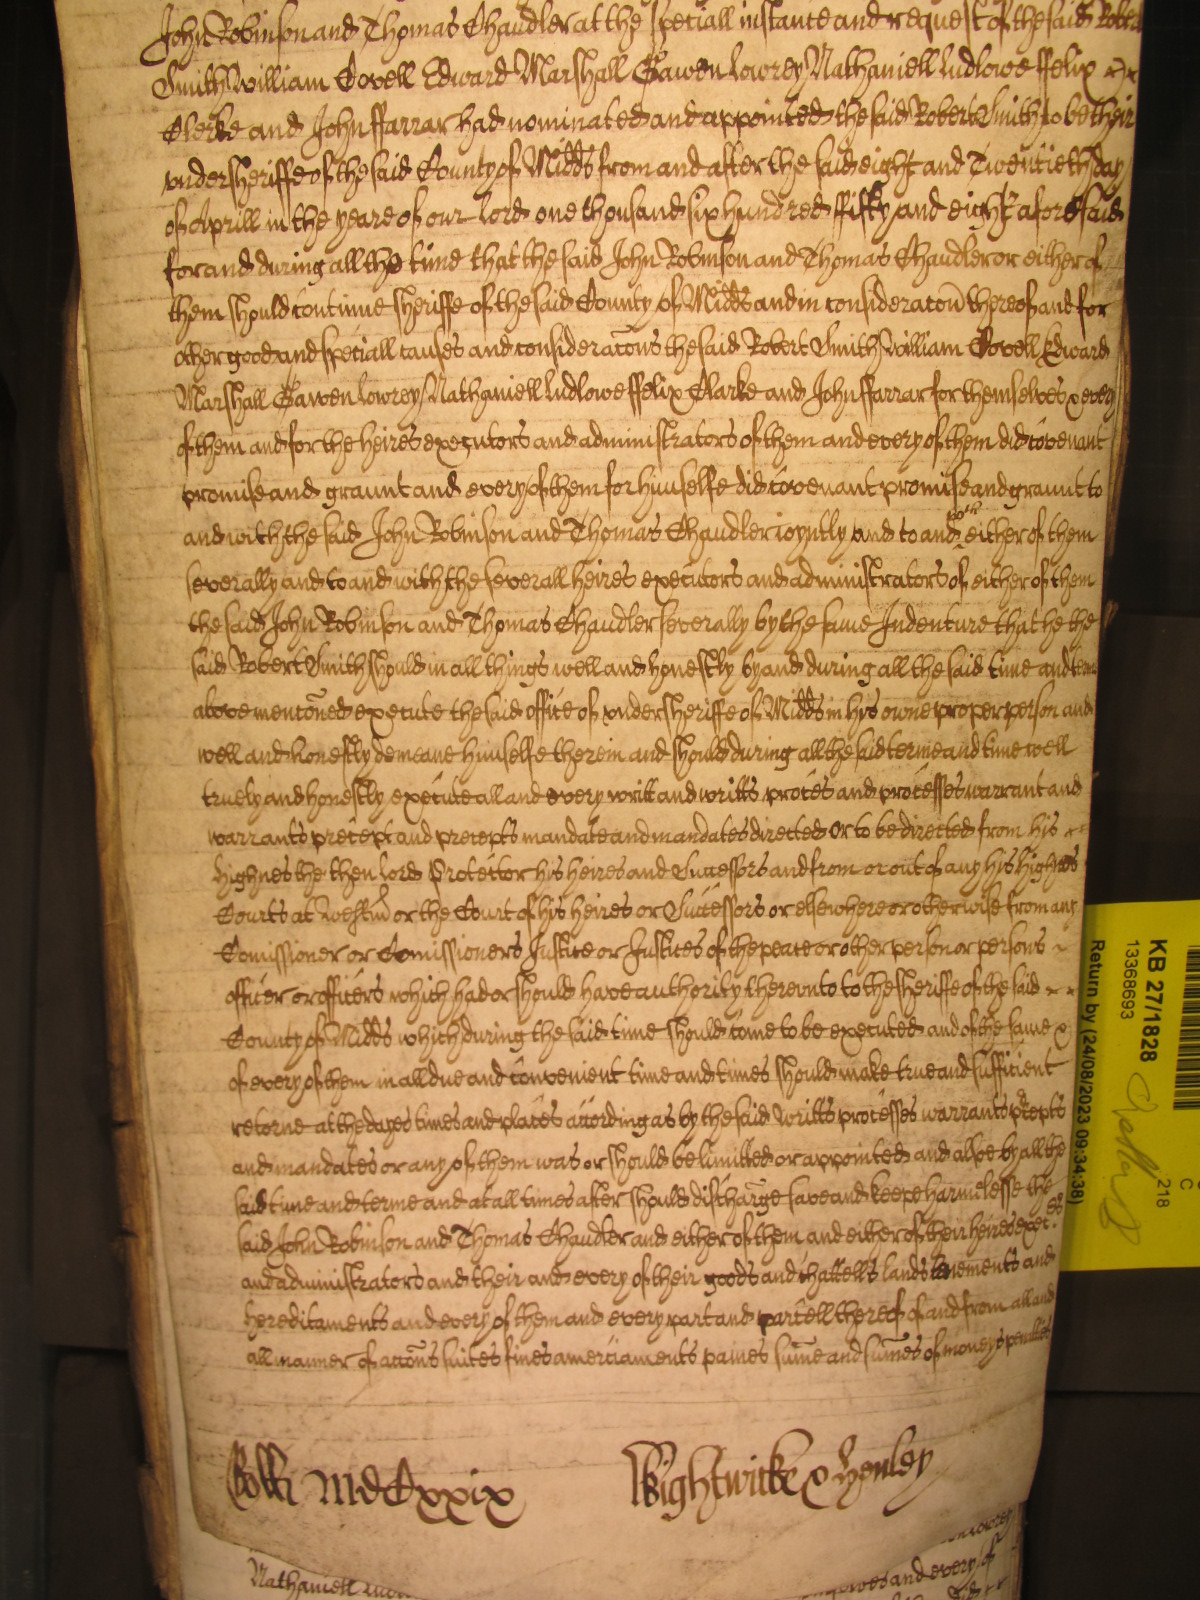 John Robinson and Thomas Chaudler at the speciall instance and request of the said Robert
Smith William Covell Edward Marshall Gawen Lowrey Nathaniell Ludlowe ffelix
Clerke and John ffarrar had nominated and appointed the said Robert Smith to be their
vndersheriffe of the said County of Midds from and after the said eight and Twentieth day
of Aprill in the yeare of our Lord one thousand six hundred ffifty and eight aforesaid
for and during all the time that the said John Robinson and Thomas Chaudler or either of
them should continue sheriffe of the said County of Midds and in consideracon thereof and for
other good and speciall causes and consideracons the said Robert Smith William Covell Edward
Marshall Gawen Lowrey Nathaniell Ludlowe ffelix Clarke and John ffarrar for themselves & every
of them and for the heires executors and administrators of them and every of them did covenant
promise and graunt and every of them for himselfe did covenant promise and graunt to
and with the said John Robinson and Thomas Chaudler ioyntly and to and with either of them
severally and to and with the severall heires executors and administrators of either of them
the said John Robinson and Thomas Chaudler severally by the same Indenture that he the
said Robert Smith should in all things well and honestly by and during all the said time and terme
above menconed execute the said office of vndersheriffe of Midds in his owne proper person and
well and honestly demeane himselfe therein and should during all the said terme and time well
truely and honestly execute all and every writt and writts proces and processes warrant and
warrants precept and precepts mandate and mandates directed or to be directed from his
highnes the then Lord Protector his heires and Successors and from or out of any his highnes
Courts at Westm or the Court of his heires or Successors or elsewhere or otherwise from any
Comissioner or Comissioners Justice or Justices of the peace or other person or persons
officer or officers which had or should have authority therevnto to the sheriffe of the said
County of Midds which during the said time should come to be executed and of the same &
of every of them in all due and convenient time and times should make true and sufficient
retorne at the dayes times and places according as by the said writts processes warrants pcepts
and mandates or any of them was or should be limitted or appointed and alsoe by all the
said time and terme and at all times after should discharge save and keepe harmelesse the
said John Robinson and Thomas Chaudler and either of them and either of their heires execrs
and administrators and their and every of their goods and chattells lands tenements and
hereditaments and every of them and every part and parcell thereof of and from all and
all manner of accons suites fines amerciaments paines sume and sumes of moneys penalties
Rolli MDCxxix Wightwicke & Henley
Nathaniell
and every of
KB 27/1828
13368693
218
C
Return by (24/08/2023 09:34:38)